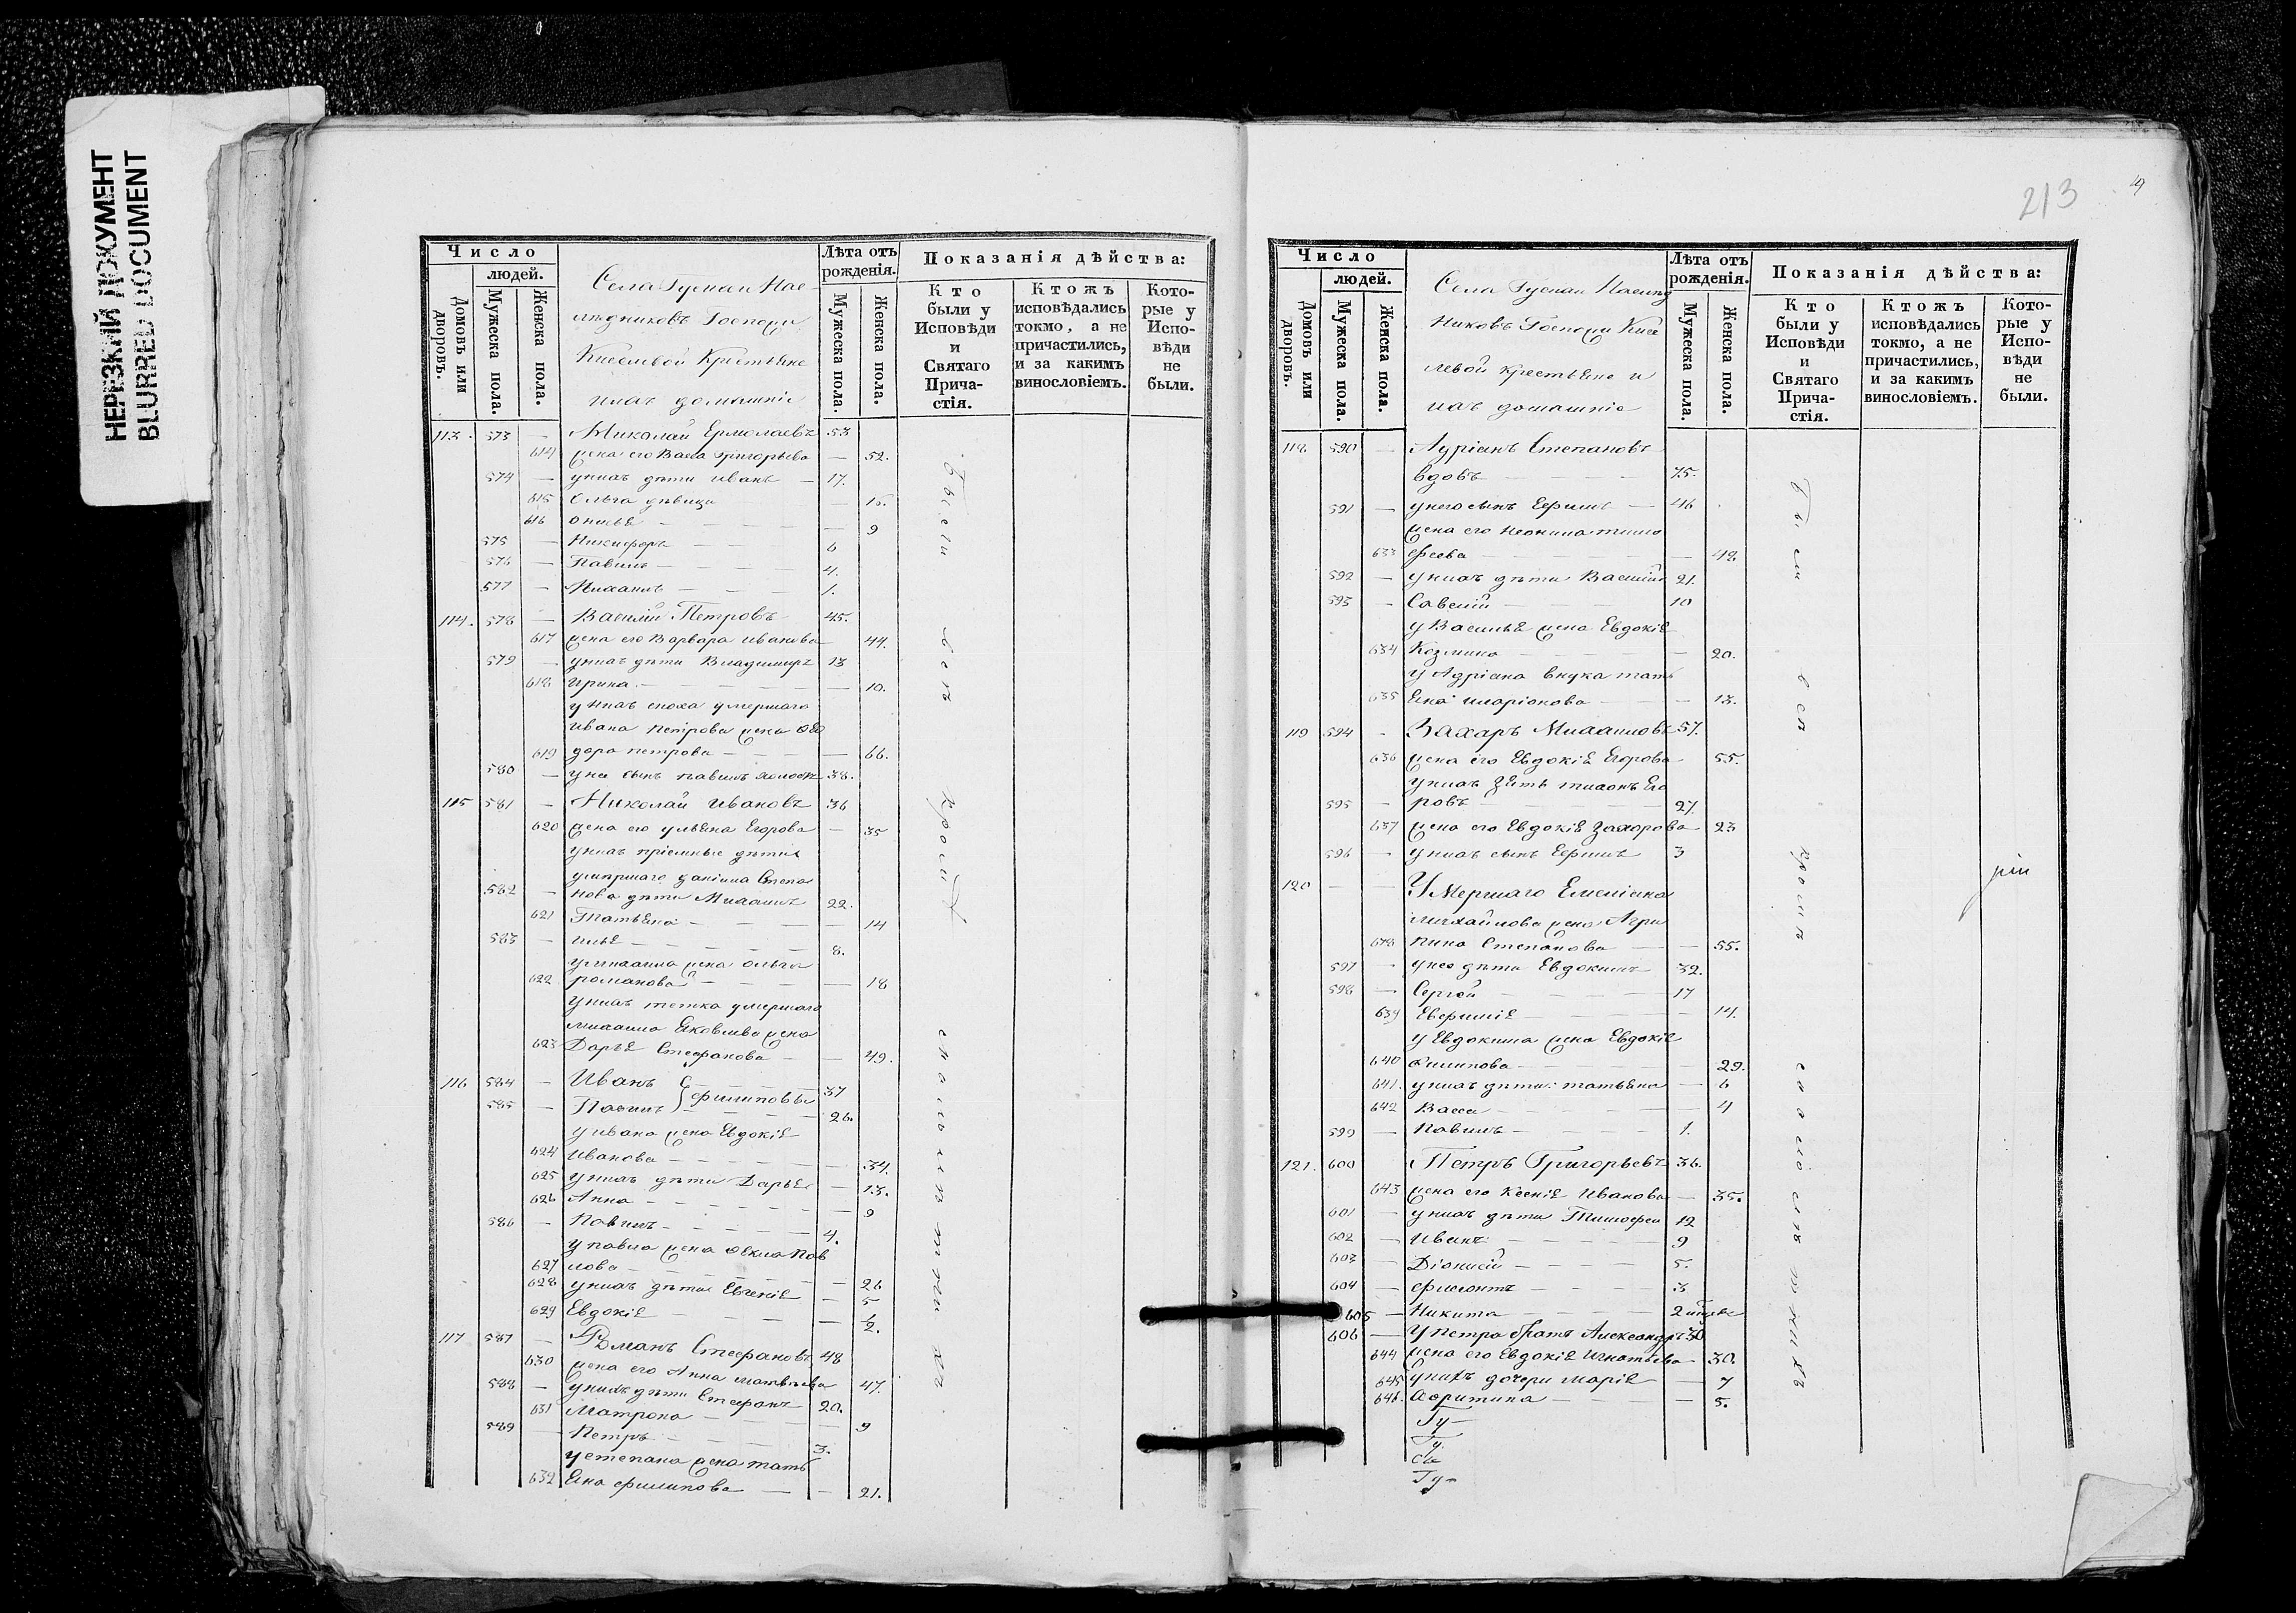 НЕРЕЗКИЙ ДОКУМЕНТ
BLURRED DOCUMENT
Число
людей.
Домовъ или дворовъ.
Мужеска пола.
Женска пола.
Села Гусмаи Нас
лѣдниковъ Госпожи
Киселевой Крестьяне
ихъ домашніе
Лѣта отъ рожденія.
Мужеска пола.
Женска пола.
Показанія дѣйства:
Кто были у Исповѣди и Святаго Причастія.
Ктожъ исповѣдались токмо, а не причастились, и за какимъ винословіемъ.
Которые у Исповѣди не были.
113. 573 — Николай Ермолаевъ 53
614 жена его Васса григорьева — 52.
574 — унихъ дѣти иванъ — 17.
615 Ольга дѣвица — 15.
616 — 9
575 — Никифоръ — 6
576 — Павилъ — 4.
577 — Михаилъ — 1.
114. 578 — Василій Петровъ 45.
617 жена его Варвара иванова 44.
579 — унихъ дѣти Владимиръ 13
618 ирина — 10.
унихъ сноха умершаго
ивана петрова жена Ѳео
619 дора петрова — 66.
580 — унеи сынъ павилъ холостъ 38.
115 581 — Николай ивановъ 36
620 жена его ульяна Егорова — 35
унихъ пріемные дѣти
умершаго даніила Степа
582 — нова дѣти Михаилъ 22.
621 Татьяна — 14
583 — илья — 8.
умихаила жена ольга
622 романова — 18
унихъ тетка умершаго
михаила Яковлева жена
623 Дарья Стефанова — 49.
116 584 — Иванъ } филиповы 37
585 — Павилъ 26.
у ивана жена Евдокія
624 иванова — 34.
625 унихъ дѣти Дарья — 13.
626 Анна — 9
586 — Павилъ — 4.
у павла жена Ѳекла Пав
627 лова — 26
628 унихъ дѣти Евгенія — 5
629 Евдокія — 2.
117 587 — Романъ Стефановъ 48
630 жена его Анна матвѣева 47.
588 — унихъ дѣти Стефанъ 20.
631 Матрона — 9
589 — Петръ — 3.
устепана жена тать
632 яна филипова — 21.
Были
вси
кромѣ
213
Число
людей.
Домовъ или дворовъ.
Мужеска пола.
Женска пола.
Села Гусмаи Наслѣд
никовъ Госпожи Кисе
левой крестьяне и
ихъ домашніе
Лѣта отъ рожденія.
Мужеска пола.
Женска пола.
Показанія дѣйства:
Кто были у Исповѣди и Святаго Причастія.
Ктожъ исповѣдались токмо, а не причастились, и за какимъ винословіемъ.
Которые у Исповѣди не были.
118 590 — Адріанъ Степановъ
вдовъ — 75.
591 — унего сынъ Ефимъ — 46
жена его неонила тимо
633 феева — 48
592 — унихъ дѣти Василій 21.
593 — Савелій — 10
у Василья жена Евдокія
634 Козмина — 20.
у Адріана внука тать
635 яна иларіонова — 13.
119 594 — Захаръ Михаиловъ 57.
636 жена его Евдокія Егорова 55.
унихъ зять тихонъ Его
595 — ровъ — 27.
637 жена его Евдокія Захарова 23
596 — унихъ сынъ Ефимъ 3
120 — — Умершаго Емеліана
михайлова жена Агри
638 пина Степанова — 55.
597 — унеа дѣти Евдокимъ 32.
598 — Сергей — 17
639 Евфимія — 14.
у Евдокима жена Евдокія
640 Филипова — 29.
641. унихъ дѣти татьяна — 6
642 Васса — 4
599 — Павилъ — 1.
121. 600 Петръ Григорьевъ 36.
643 жена его Ксенія Иванова — 35.
601 — унихъ дѣти Тимофеи 12
602 — иванъ — 9
603 — Діонисій — 5.
604 — филионтъ — 3
605 — Никита — 2
606 — У петра братъ Александръ 30
644 жена его Евдокія Игнатьева 30.
645 унихъ дочери марія — 7
646. — 5.
Были
вси
кромѣ